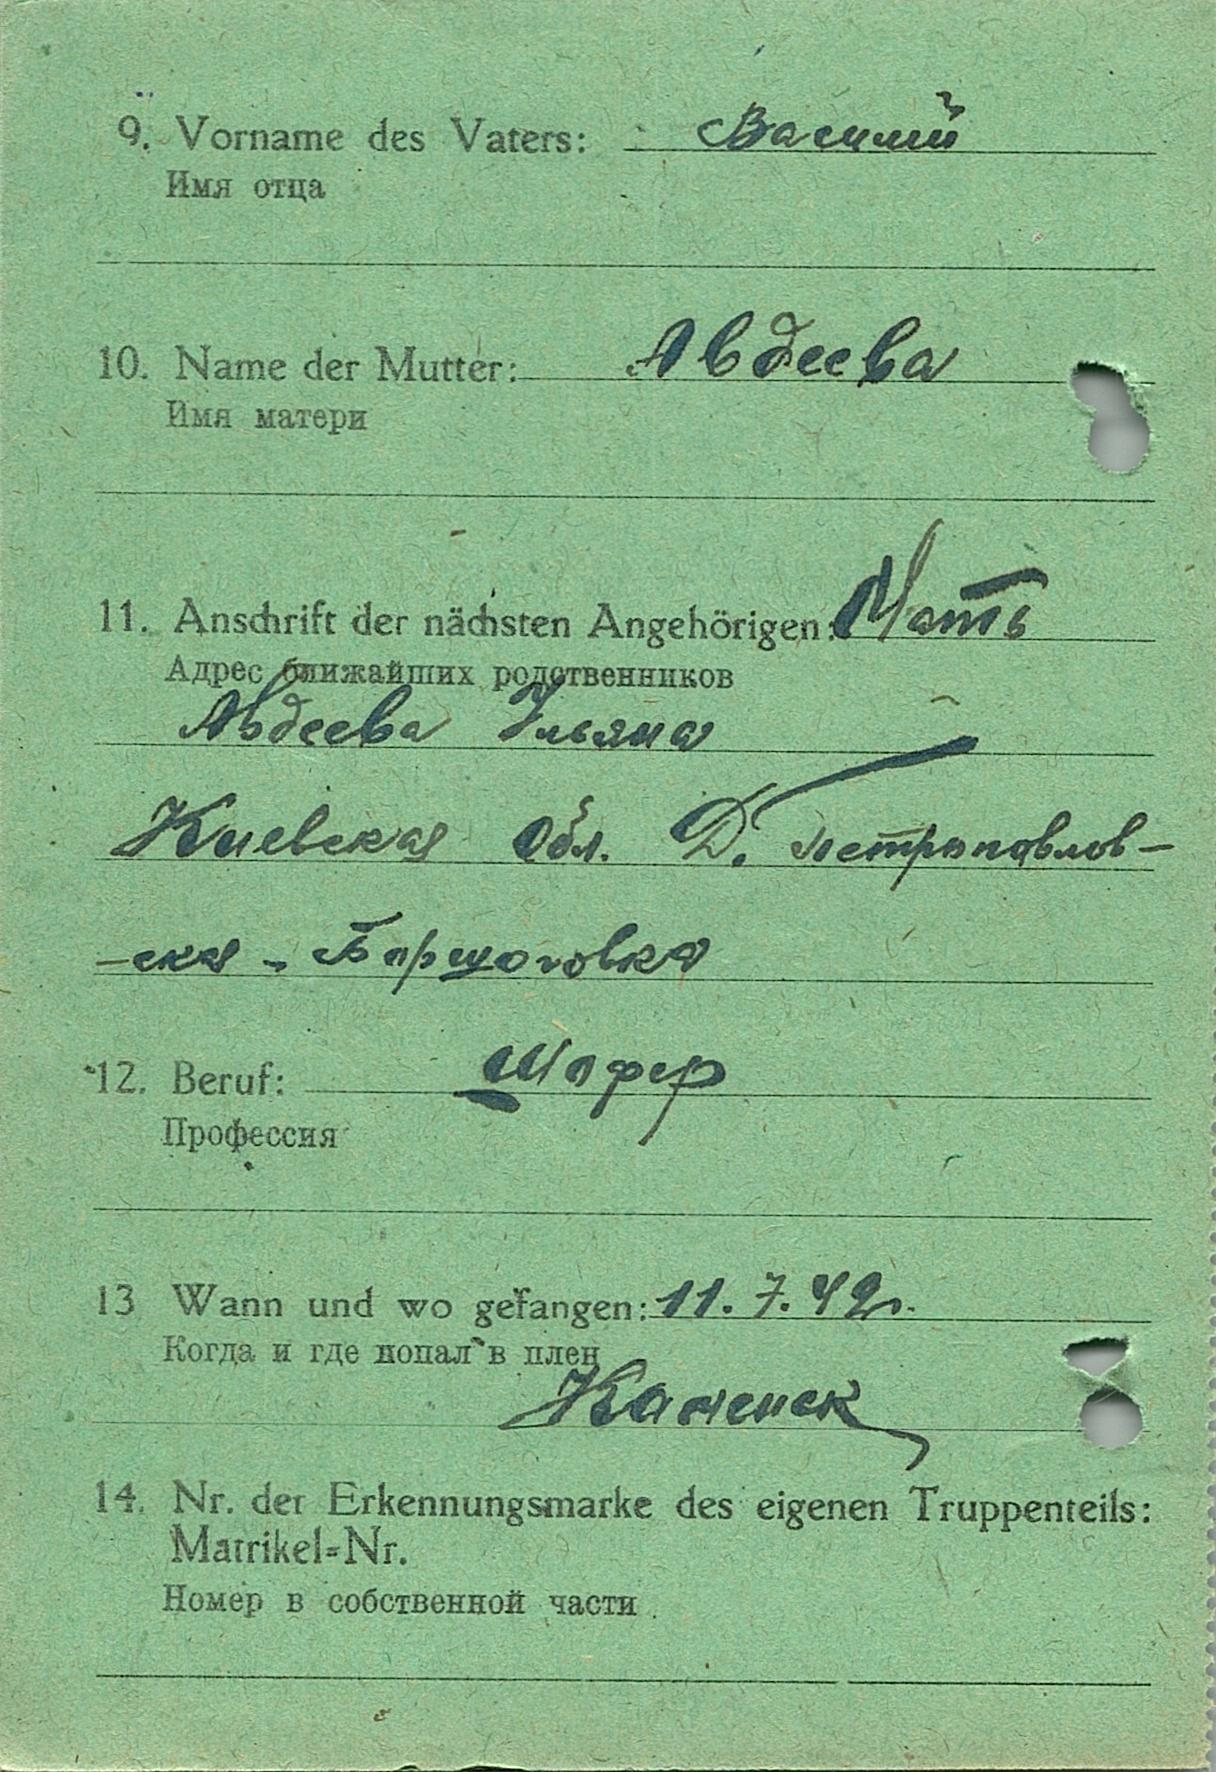 9. Vorname des Vaters: Василий
Имя отца
10. Name der Mutter: Авдеева
Имя матери
11. Anschrift der nächsten Angehörigen: Мать
Адрес ближайших родственников
Авдеева Ульяна
Киевская Обл. Д. петропавлов-
-ская - Борщоговка
12. Beruf: Шофер
Профессия
13 Wann und wo gefangen: 11.7.42г.
Когда и где попал в плен
Каменск
14. Nr. der Erkennungsmarke des eigenen Truppenteils:
Matrikel=Nr.
Номер в собственной части